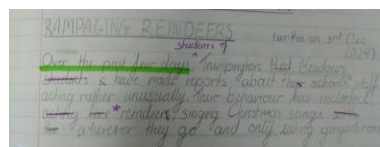 RAMPAGING REINDEERS
(written on 3rd Dec 2024)
students of
Over the past few days, Trumpington Meadows
& have made reports about their schools' staff
acting rather unusually. Their behaviour has included
reindeers' singing Christmas songs
wherever they go and only eating gingerbread